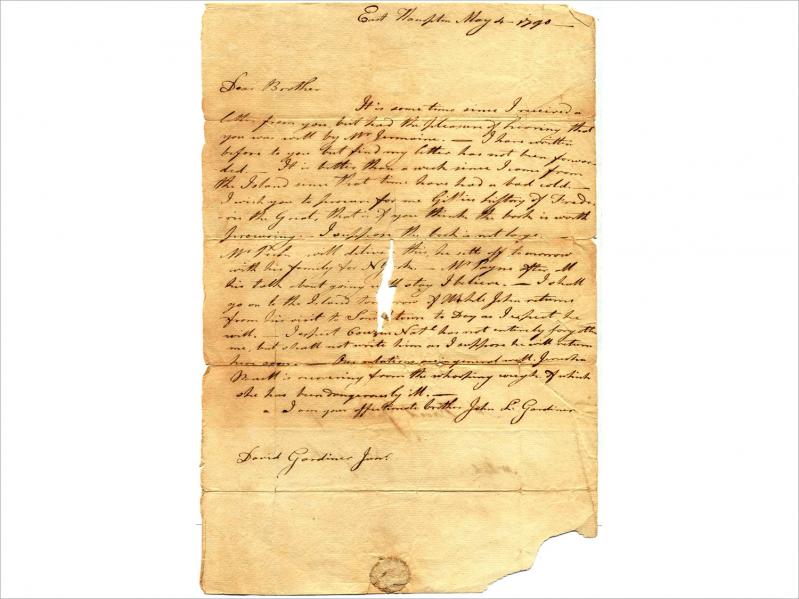 East Hampton May 4 1790
Dear Brother
It is some time since I received a
letter from you but had the pleasure of hearing that
you was well by Mr Jermaine. — I have written
before to you but find my letter has not been forwar-
ded — It is better than a week since I came from
the Island since that time have had a bad cold —
I wish you to procure for me Gillies history of Frede-
-ric the Great, that is if you think the book is worth
procuring. — I suppose the book is not large.
Mr will deliver this, he sets off tomorrow
with his family for N York. — Mr Payne after all
his talk about going will stay I believe. — I shall
go on to the Island tomorrow if John returns
from his visit to town to Day as I expect he
will. — I expect Couzen Natl. has not entirely forgotten
me, but shall not write him as I suppose he will return
here soon. — Our relations are in general well. Jerusha
is recovering from the whooping cough of which
she has been dangerously ill. —
I am your affectionate brother John L. Gardiner
David Gardiner Junr.